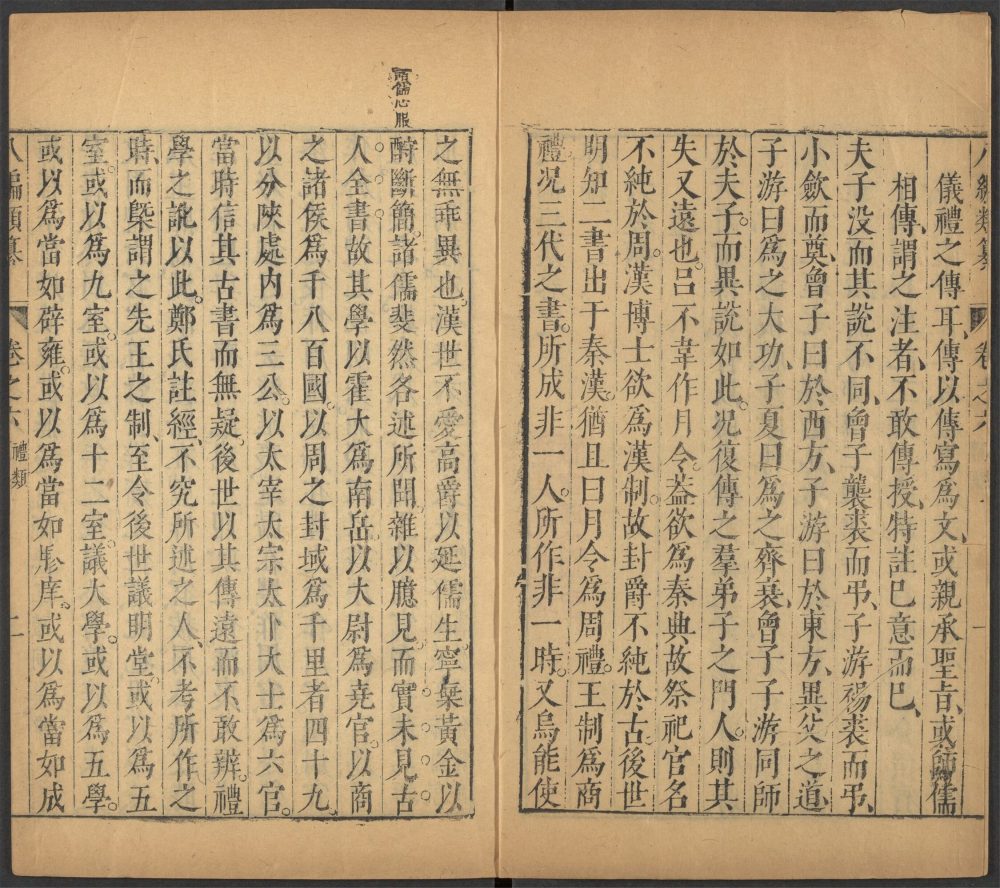 八編類纂 卷之六 一
儀禮之傳耳傳以傳寫爲文或親承聖旨或師儒
相傳謂之注者不敢傳授特註巳意而巳
夫子没而其説不同曾子襲裘而弔子游裼裘而弔
小歛而奠曾子曰於西方子游曰於東方異父之道
子游曰爲之大功子夏曰爲之齊衰曾子子游同師
於夫子而異説如此况復傳之羣弟子之門人則其
失又遠也呂不韋作月令葢欲爲秦典故祭祀官名
不純於周漢博士欲爲漢制故封爵不純於古後世
明知二書出于秦漢猶且曰月令爲周禮王制爲商
禮况三代之書所成非一人所作非一時又烏能使
之無乖異也漢世不愛高爵以延儒生寧棄黃金以
諸儒心服
酧斷簡諸儒斐然各述所聞雜以臆見而實未見古
人全書故其學以霍大爲南岳以大尉爲堯官以商
之諸侯爲千八百國以周之封域爲千里者四十九
以分陝處内爲三公以太宰太宗太卜大士爲六官
當時信其古書而無疑後世以其傳遠而不敢辨禮
學之訛以此鄭氏註經不究所述之人不考所作之
時而槩謂之先王之制至令後世議明堂或以爲五
室或以爲九室或以爲十二室議大學或以爲五學
或以爲當如辟雍或以爲當如膠庠或以爲當如成
八編類纂 卷之六 禮類 二